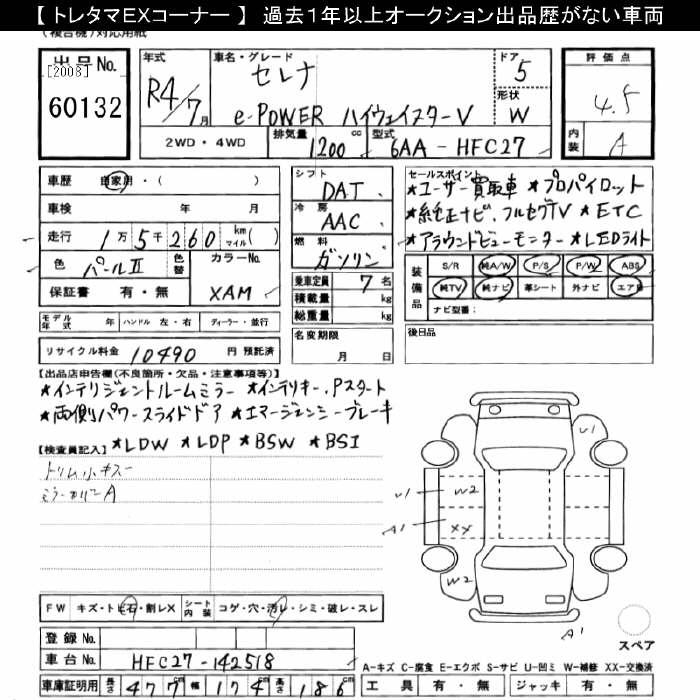 【 トレタマEXコーナー 】 過去1年以上オークション出品歴がない車両
(複合機)対応用紙
出品No.
[2008]
60132
年式
R4/7月
車名・グレード
セレナ
e-POWER ハイウェイスターV
ドア
5
形状
W
評価点
4.5
内装
A
2WD・4WD
排気量
1200 cc
型式
6AA - HFC27
車歴 自家用・( )
車検 年 月
走行 1万5千260 km マイル( )
色 パールⅡ 色替 カラーNo.
保証書 有・無 XAM
シフト
DAT
冷房
AAC
燃料
ガソリン
乗車定員 7名
積載量 kg
総重量 kg
セールスポイント
★ユーザー買取車 ★プロパイロット
★純正ナビ、フルセグTV ★ETC
★アラウンドビューモニター ★LEDライト
装備品
S/R 純A/W P/S P/W ABS
純TV 純ナビ 革シート 外ナビ エアB
ナビ型番:
モデル年式 年 ハンドル 左・右 ディーラー・並行
名変期限
月 日
後日品
リサイクル料金 10490 円 預託済
【出品店申告欄(不良箇所・欠品・注意事項等)】
★インテリジェントルームミラー ★インテリキー、Pスタート
★両側パワースライドドア ★エマージェンシーブレーキ
★LDW ★LDP ★BSW ★BSI
【検査員記入】
トリム小キズ
A
U1
U1
W2
A1
XX
W2
A1
FW キズ・トビ石・割レX シート内装 コゲ・穴・汚レ・シミ・破レ・スレ
登録No.
車台No. HFC27-142518
車庫証明用 長さ 477cm 幅 174cm 高さ 186cm
スペア
A-キズ C-腐食 E-エクボ S-サビ U-凹ミ W-補修 XX-交換済
工具 有・無 ジャッキ 有・無